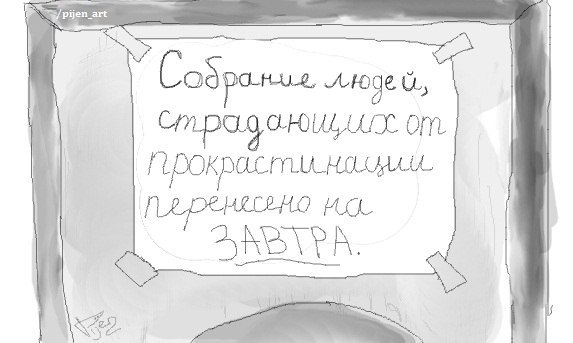 /pijen_art
Собрание людей,
страдающих от
прокрастинации
перенесено на
ЗАВТРА.
Pijen